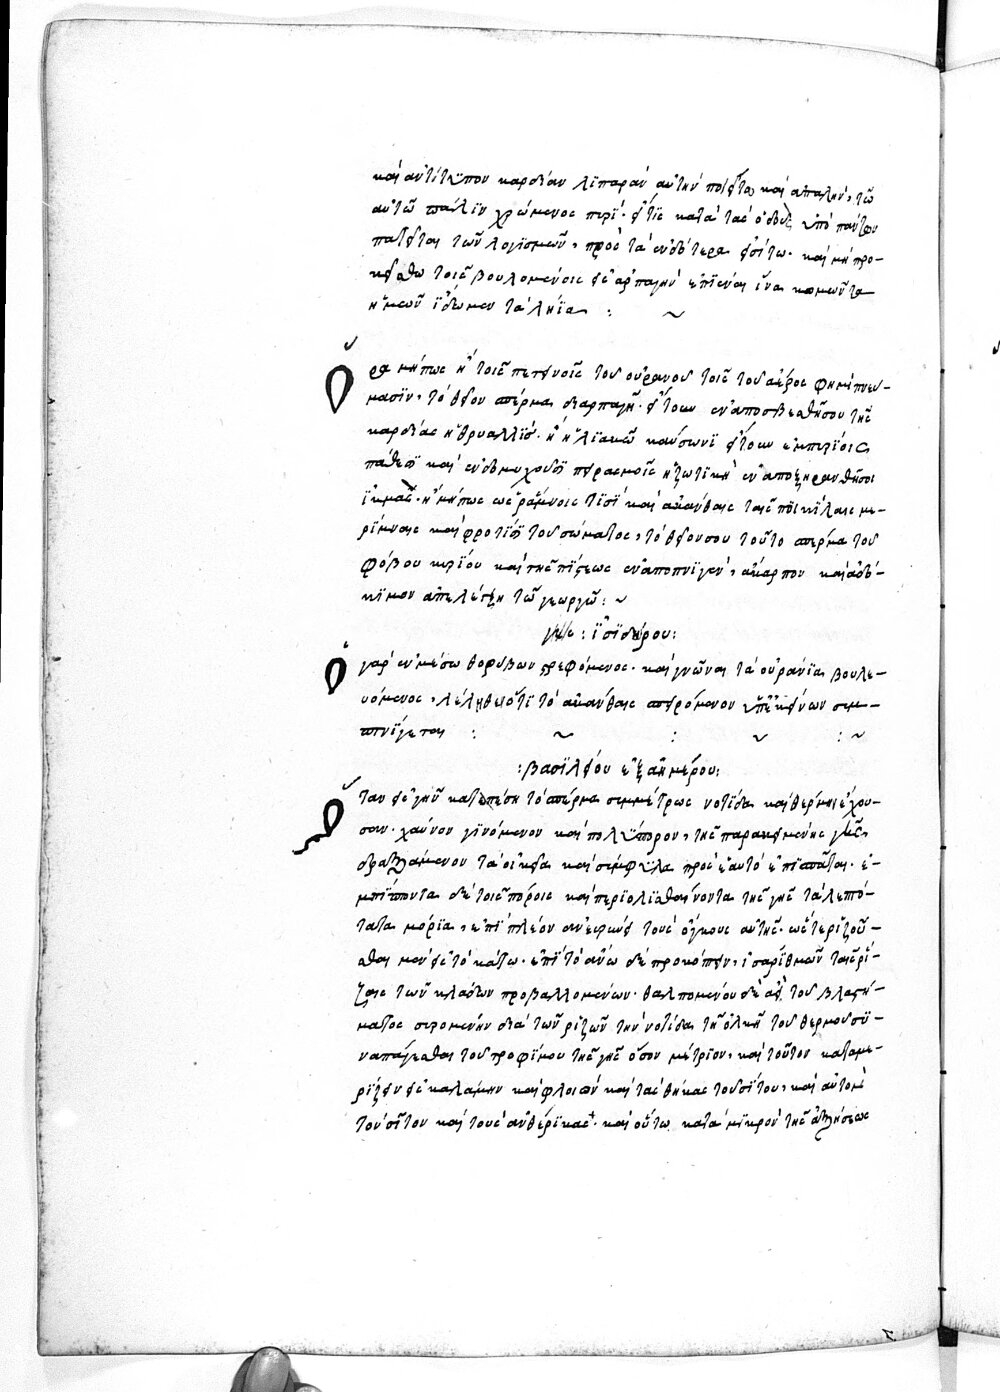 καὶ ἀντίτυπον καρδίαν λιπαρὰν αὐτὴν ποιείτω καὶ ἁπαλήν, τῶ
αὐτῶ πάλιν χρώμενος πυρί. εἴ τις κατὰ τὰς ὁδοὺς ὑπὸ πάντων
πατεῖται τῶν λογισμῶν, πρὸς τὰ ἐνδότερα εἰσίτω. καὶ μὴ προ-
κείσθω τοῖς βουλομένοις εἰς ἁρπαγὴν ἐπιέναι ἵνα κομῶντα
ἡμῶν ἴδωμεν τὰ λήϊα :
Ὅρα μήπως ἢ τοῖς πετεινοῖς τοῦ οὐρανοῦ τοῖς τοῦ ἀέρος φημὶ πνεύ-
μασιν, τὸ θεῖον σπέρμα διαρπαγῆ. εἴτουν ἐναποσβεσθῆ σου τῆς
καρδίας ἡ θρυαλλίς. ἢ ἡλιακῶ καύσωνι εἴτουν ἐμπυρίοις
πάθεσι καὶ ἐνδομυχοῦσι πειρασμοῖς ἡ ζωτικὴ ἐναποξηρανθήσεται
ἰκμάς. ἢ μήπως ὡσεράμνοις τισὶ καὶ ἀκάνθαις ταῖς ποικίλαις με-
ρίμναις καὶ φροντίσι τοῦ σώματος, τὸ θεῖόν σου τοῦτο σπέρμα τοῦ
φόβου κυρίου καὶ τῆς πίστεως ἐναποπνιγὲν, ἄκαρπον καὶ ἀδό-
κιμον ἀπελέγξη τῶ γεωργῶ :
: ἰσιδώρου :
Ὁ γὰρ ἐν μέσω θορύβων στρεφόμενος. καὶ γνῶναι τὰ οὐράνια βουλε-
υόμενος, λέληθεν ὅτι τὸ ἀκάνθαις σπειρόμενον ὑπ' ἐκείνων συμ-
πνίγεται : : :
: βασιλείου ἑξαημέρου :
Ὅταν εἰς γῆν καταπέση τὸ σπέρμα συμμέτρως νοτίδα καὶ θέρμης ἔχου-
σαν. χαῦνον γινόμενον καὶ πολύπορον, τῆς παρακειμένης γῆς
δραξάμενον τὰ οἰκεῖα καὶ σύμφυλα πρὸς ἑαυτὸ ἐπισπᾶται. ἐ-
μπίπτοντα δὲ τοῖς πόροις καὶ περιολισθαίνοντα τῆς γῆς τὰ λεπτό-
τατα μόρια, ἐπὶ πλέον ἀνευρύνει τοὺς ὄγκους αὐτῆς. ὥστε ῥιζοῦ-
σθαι μὲν εἰς τὸ κάτω. ἐπὶ τὸ ἄνω δὲ προκόπτειν, ἰσαρίθμων ταῖς ῥί-
ζαις τῶν κλάδων προβαλλομένων. θαλπομένου δὲ ἀεὶ τοῦ βλαστή-
ματος συρομένην διὰ τῶν ῥιζῶν τὴν νοτίδα τῆ ὁλκῆ τοῦ θερμοῦ συ-
ναπάγεσθαι τοῦ τροφίμου τῆς γῆς ὅσον μέτριον, καὶ τοῦτον καταμε-
ρίζειν εἰς καλάμην καὶ φλοιὸν καὶ τὰς θήκας τοῦ σίτου, καὶ αὐτόν
τὸν σῖτον καὶ τοὺς ἀνθέρικας. καὶ οὕτω κατὰ μικρὸν τῆς αὐξήσεως